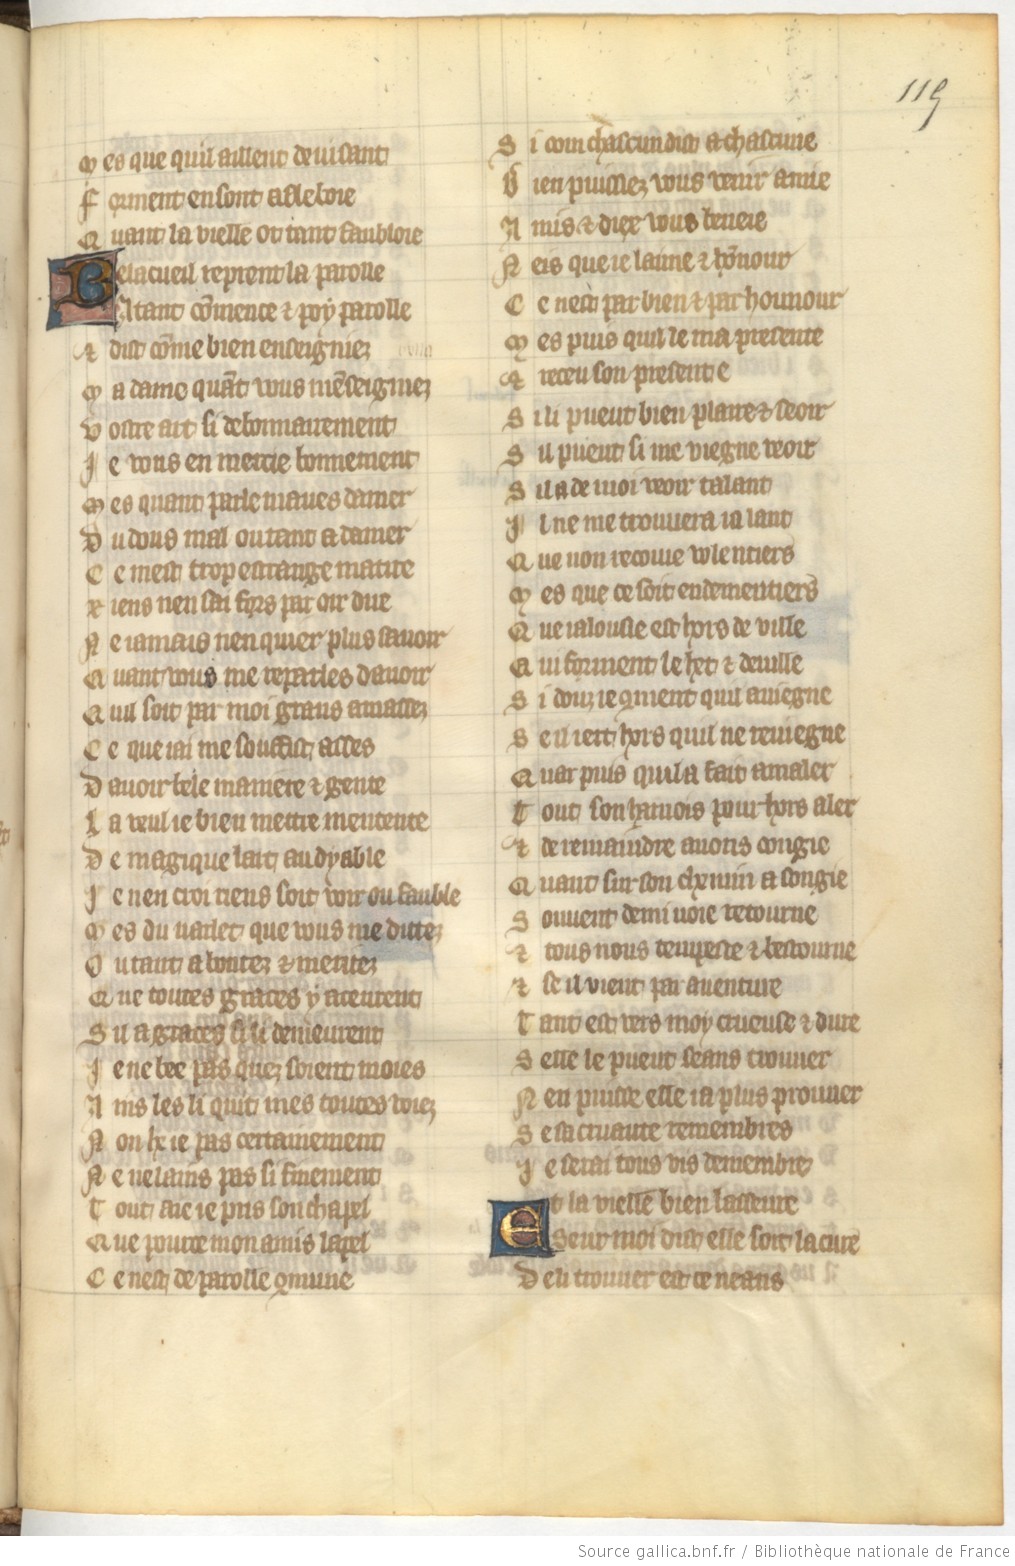 119
M es que quil aillent deuisant
F orment en sont affleboie
Q uant la vielle ot tant fabloie
B elacueil reprent la parolle
A tant cõmence & poy parolle
& dist cõme bien enseigniez
M a dame quãt vous mẽseigniez
V ostre art si debonnairement
J e vous en mercie bonnement
M es quant parle maues damer
D u dous mal ou tant a damer
C e mest trop estrange matire
R iens nen sai fors par oir dire
N e iamais nen quier plus sauoir
Q uant vous me reparles dauoir
Q uil soit par moi grans amassez
C e que iai me souffist asses
D auoir bele maniere & gente
L a veul ie bien mettre mentente
D e magique lart au dyable
J e nen croi riens soit voir ou fauble
M es du varlet que vous me dites
O u tant a bontez & merites
Q ue toutes graces y aceurent
S il a graces si li demeurent
J e ne bee pas quez soient moies
A ins les li quit mes toutes voiez
N on he ie pas certainement
N e ne lains pas si finement
T out aie ie pris son chapel
Q ue pource mon amis lapel
C e nest de parolle 9mune
S i com chascun dist a chascune
B ien puissiez vous venir amie
A mis & diex vous beneie
N eis que ie laime & hõnour
C e nest par bien & par hounour
M es puis quil le ma presente
& receu son present e
S i li pueut bien plaire & seoir
S il pueut si me viegne veoir
S il a de moi veoir talant
J l ne me trouuera ia lant
Q ue non recoiue volentiers
M es que ce soit endementiers
Q ue ialousie est hors de ville
Q ui forment le het & deuille
S i douz ie 9ment quil auiegne
S e il ert hors quil ne reuiegne
Q uar puis quil a fait amaler
T out son harnois pour hors aler
& de remaindre auons congie
Q uant sur son chemin a songie
S ouuent demi uoie retourne
& tous nous tempeste & bestourne
& se il vient par auenture
T ant est vers moy crueuse & dure
S elle le pueut seans trouuer
N en puisse elle ia plus prouuer
S e sa cruaute remembres
J e serai tous vis demembrez
E t la vielle bien lasseure
S eur moi dist elle soit la cure
D eli trouuer est ce neans
Source gallica.bnf.fr / Bibliothèque nationale de France